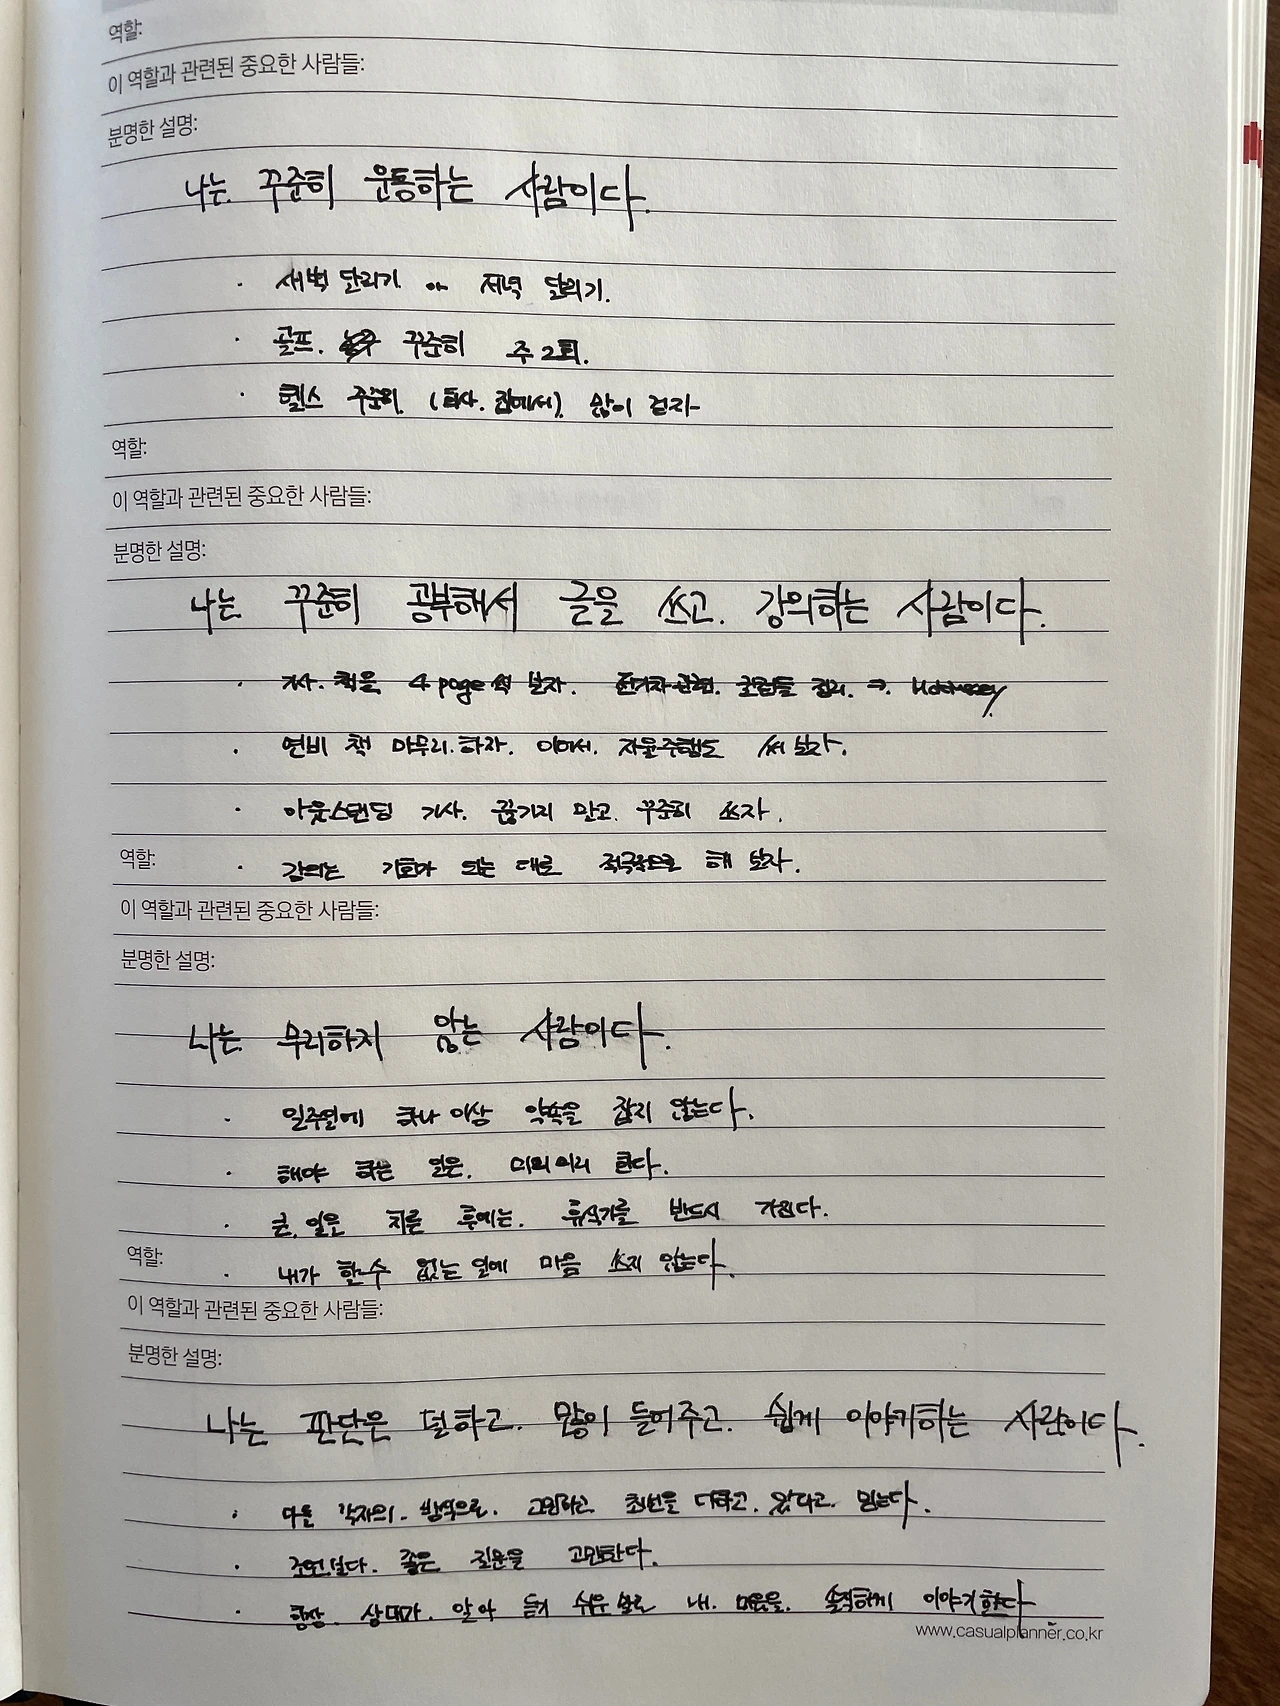 역할:
이 역할과 관련된 중요한 사람들:
분명한 설명:
나는 꾸준히 운동하는 사람이다.
· 새벽 달리기 or 저녁 달리기.
· 골프. 꾸준히 주 2회.
· 헬스 꾸준히. (회사. 집에서). 많이 걷자
역할:
이 역할과 관련된 중요한 사람들:
분명한 설명:
나는 꾸준히 공부해서 글을 쓰고. 강의하는 사람이다.
· 기사. 책을 4 page씩 보자. 전기차 관련. 글들 정리. →
· 연비 책 마무리.하자. 이어서. 자율주행도 써 보자.
· 아웃스탠딩 기사. 끊기지 말고. 꾸준히 쓰자.
역할: · 강의는 기회가 되는 대로 적극적으로 해 보자.
이 역할과 관련된 중요한 사람들:
분명한 설명:
나는 무리하지 않는 사람이다.
· 일주일에 하나 이상 약속을 잡지 않는다.
· 해야 하는 일은. 미리미리 한다.
· 큰. 일을 치른 후에는. 휴식기를 반드시 가진다.
역할: · 내가 할 수 없는 일에 마음 쓰지 않는다.
이 역할과 관련된 중요한 사람들:
분명한 설명:
나는 판단은 덜하고. 많이 들어주고. 쉽게 이야기하는 사람이다.
· 다들 각자의. 방식으로. 고민하고. 최선을 다하고. 있다고. 믿는다.
· 조언보다. 좋은 질문을 고민한다.
· 항상. 상대가. 알아 듣기 쉬운 말로 내. 마음을. 솔직하게 이야기한다.
www.casualplanner.co.kr